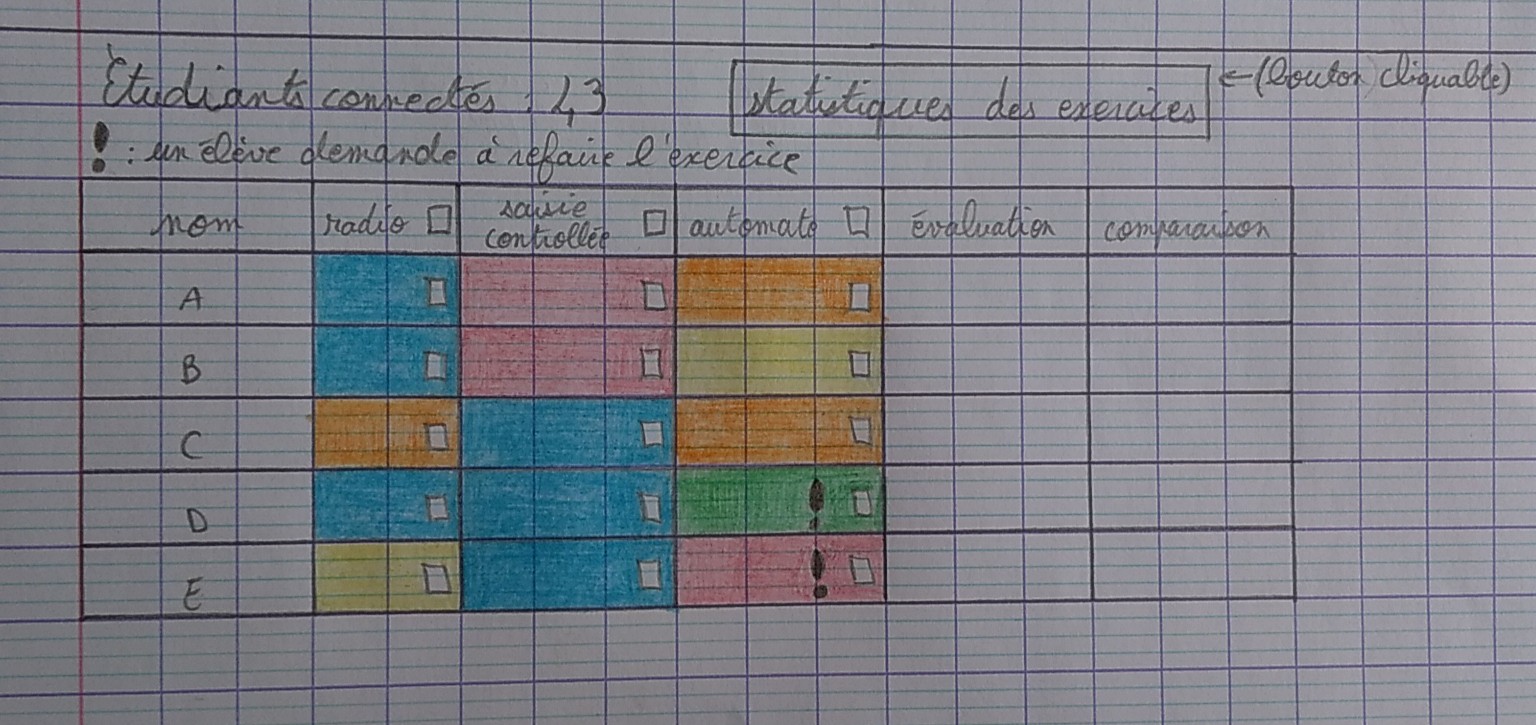 Etudiants connectés : 43
statistiques des exercices
← (bouton cliquable)
! : un élève demande à refaire l'exercice
nom radio saisie controllée automate évaluation comparaison
A
B
C
D !
E !